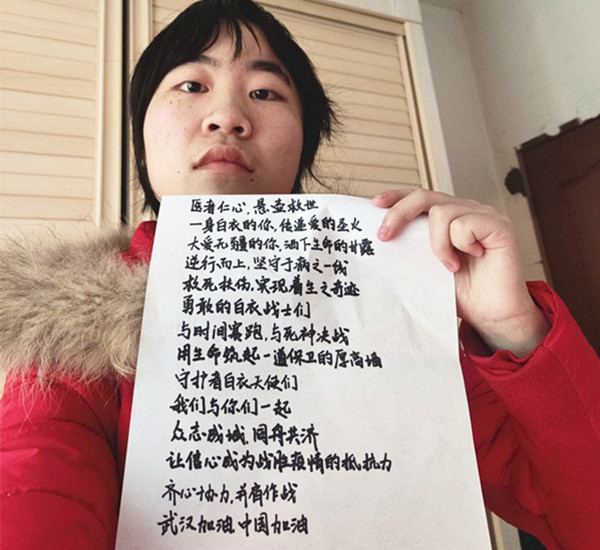 医者仁心，悬壶救世
一身白衣的你，传递爱的圣火
大爱无疆的你，洒下生命的甘露
逆行而上，坚守于病之一线
救死扶伤，实现着生之奇迹
勇敢的白衣战士们
与时间赛跑，与死神决战
用生命筑起一道保卫的厚高墙
守护者白衣天使们
我们与你们一起
众志成城，同舟共济
让信心成为战胜疫情的抵抗力
齐心协力，并肩作战
武汉加油，中国加油